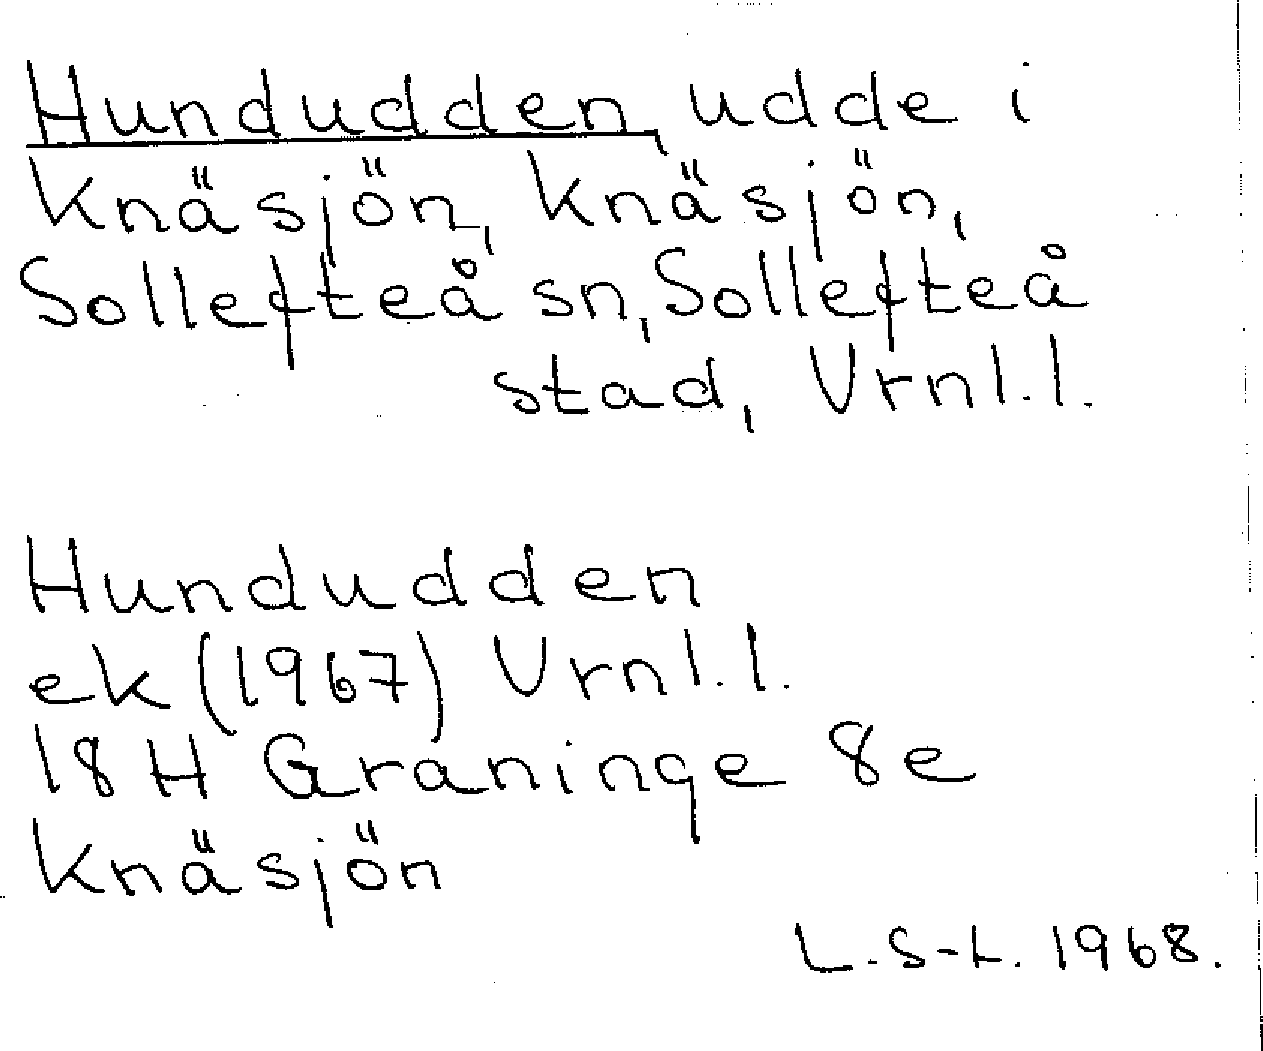 Hundudden, udde i
Knäsjön, Knäsjön,
Sollefteå sn, Sollefteå
stad, Vrnl.l.
Hundudden
ek (1967) Vrnl.l.
18 H Graninge 8e
Knäsjön
L.S-L. 1968.